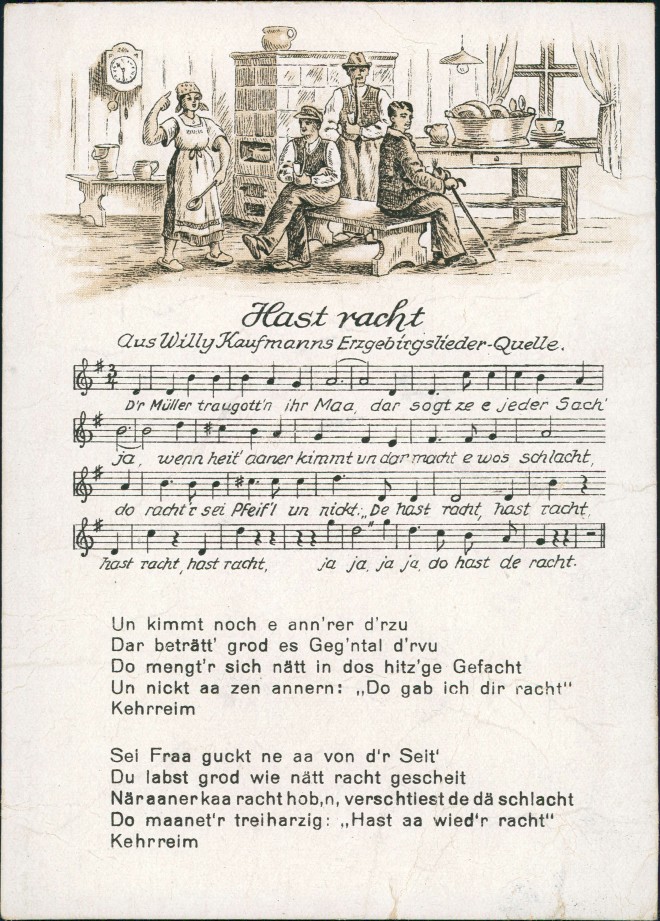 Hast racht
Aus Willy Kaufmanns Erzgebirgslieder-Quelle.
D'r Müller traugott'n ihr Maa, dar sogt ze e jeder Sach'
ja, wenn heit' aaner kimmt un dar macht e wos schlacht,
do racht'r sei Pfeif'l un nickt: „De hast racht, hast racht,
hast racht, hast racht, ja ja, ja ja, do hast de racht.
Un kimmt noch e ann'rer d'rzu
Dar beträtt' grod es Geg'ntal d'rvu
Do mengt'r sich nätt in dos hitz'ge Gefacht
Un nickt aa zen annern: „Do gab ich dir racht"
Kehrreim
Sei Fraa guckt ne aa von d'r Seit'
Du labst grod wie nätt racht gescheit
Näraanerkaa racht hob,n, verschtiest de dä schlacht
Do maanet'r treiharzig: „Hast aa wied'r racht"
Kehrreim